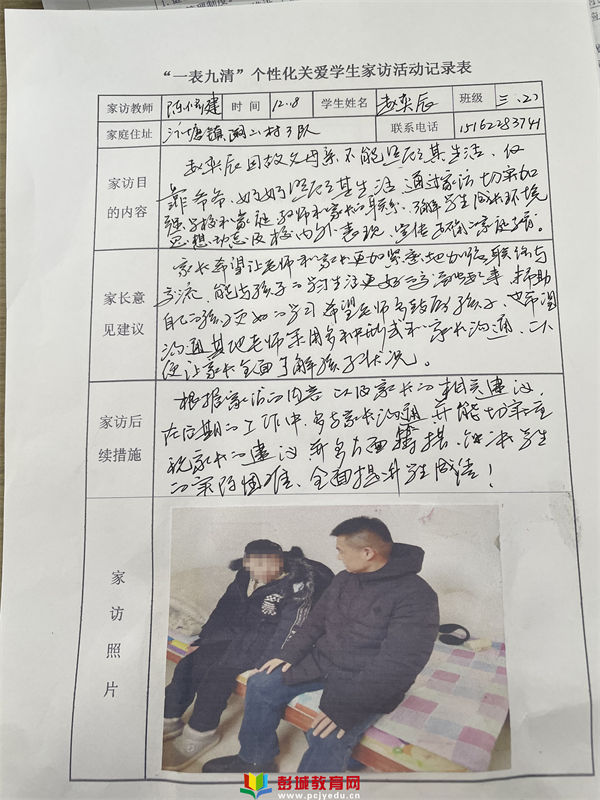 “一表九清”个性化关爱学生家访活动记录表
家访教师 陈信建 时间 12.8 学生姓名 赵奕辰 班级 三.(2)
家庭住址 汴塘镇 村3队 联系电话 15162283741
家访目的内容
赵奕辰因故父母亲不能照顾其生活,仅
靠爷爷、奶奶照顾其生活,通过家访切实加
强学校和家庭、教师和家长的联系,了解学生成长环境
思想动态及校内外表现,宣传正确的家庭教育。
家长意见建议
家长希望让老师和家长更加紧密地加强联络与
交流,能与孩子的学习生活更好
自己的孩子更好的学习希望老师多 孩子,也希望
沟通其他老师采用多种形式和家长沟通,以
便让家长全面了解孩子状况。
家访后续措施
根据家访的内容以及家长的相关建议,
在后期的工作中,多与家长沟通,并能切实重
视家长的建议并多方面 措施,解决学生
的实际困难、全面提升学生成绩!
家访照片
彭城教育网
www.pcjyedu.cn